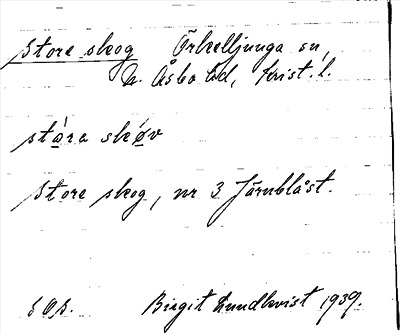 Store skog Örkelljunga sn,
N. Åsbo hd, Krist. l.
stára skóv
Store skog, nr 3 Järnblåst.
s Og.
Birgit Lundkvist 1939.